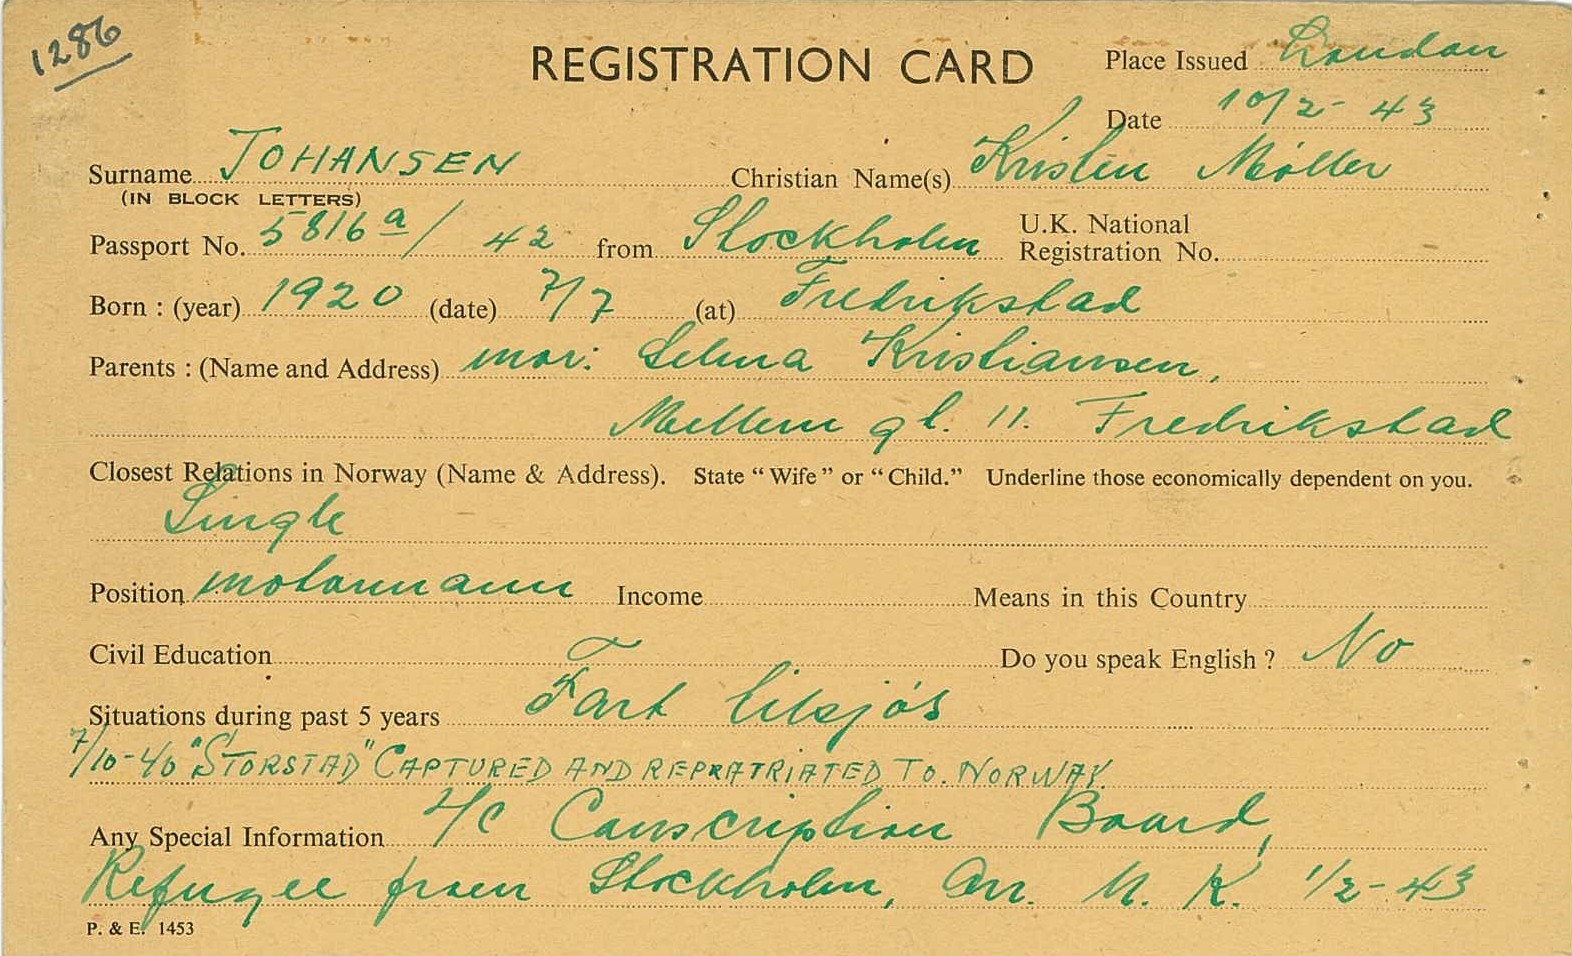 1286
REGISTRATION CARD
Place Issued London
Date 10/2-43
Surname JOHANSEN Christian Name(s) Kristen Möller
(IN BLOCK LETTERS)
Passport No. 5816a/42 from Stockholm U.K. National Registration No.
Born : (year) 1920 (date) 7/7 (at) Fredrikstad
Parents : (Name and Address) mor: Selma Kristiansen,
Mellem gt. 11. Fredrikstad
Closest Relations in Norway (Name & Address). State "Wife" or "Child." Underline those economically dependent on you.
Single
Position motormann Income Means in this Country
Civil Education Do you speak English ? No
Situations during past 5 years Fart tilsjós
7/10-40 "STORSTAD" CAPTURED AND REPRATRIATED TO. NORWAY.
Any Special Information Conscription Board,
Refugee from Stockholm, Arr. U. K. 1/2-43
P. & E. 1453